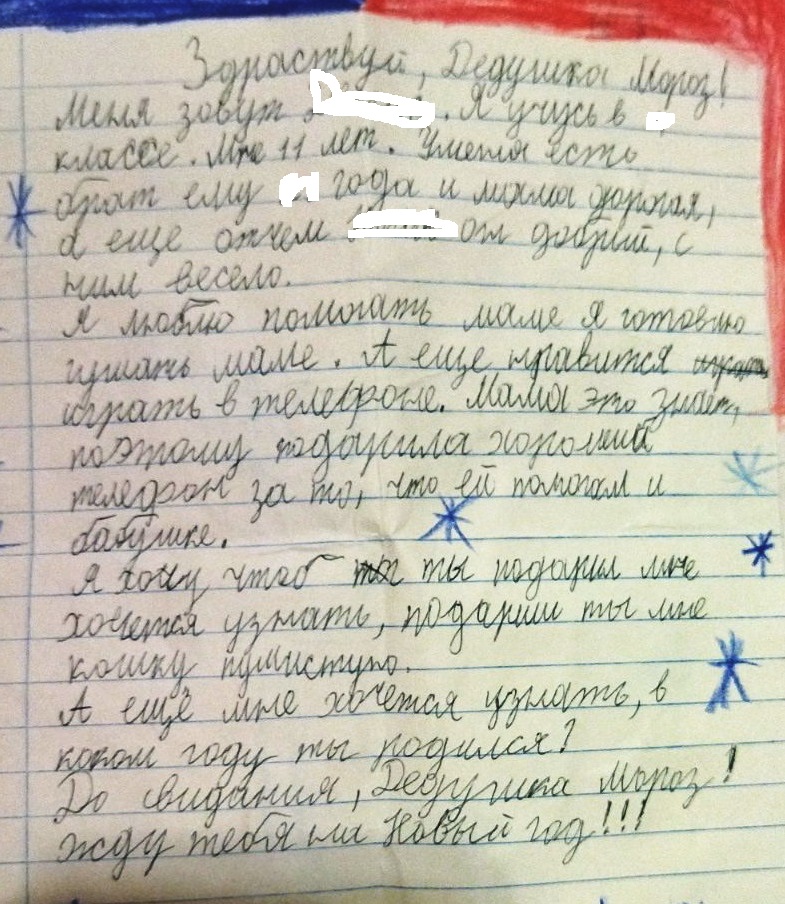 Здраствуй, Дедушка Мороз!
Меня зовут . Я учусь в
классе. Мне 11 лет. Уменя есть
брат ему года и мама дорогая,
а еще отчем он добрий, с
ним весело.
Я люблю помогать маме я готовлю
кушать маме. А еще нравится
играть в телефоне. Мама это знает,
поэтому подарила хороший
телефон за то, что ей помогаю и
бабушке.
Я хочу чтоб ты подарил мне
хочется узнать, подариш ты мне
кошку пушистую.
А ещё мне хочется узнать, в
каком году ты родился?
До свидания, Дедушка Мороз!
Жду тебя на Новый год!!!